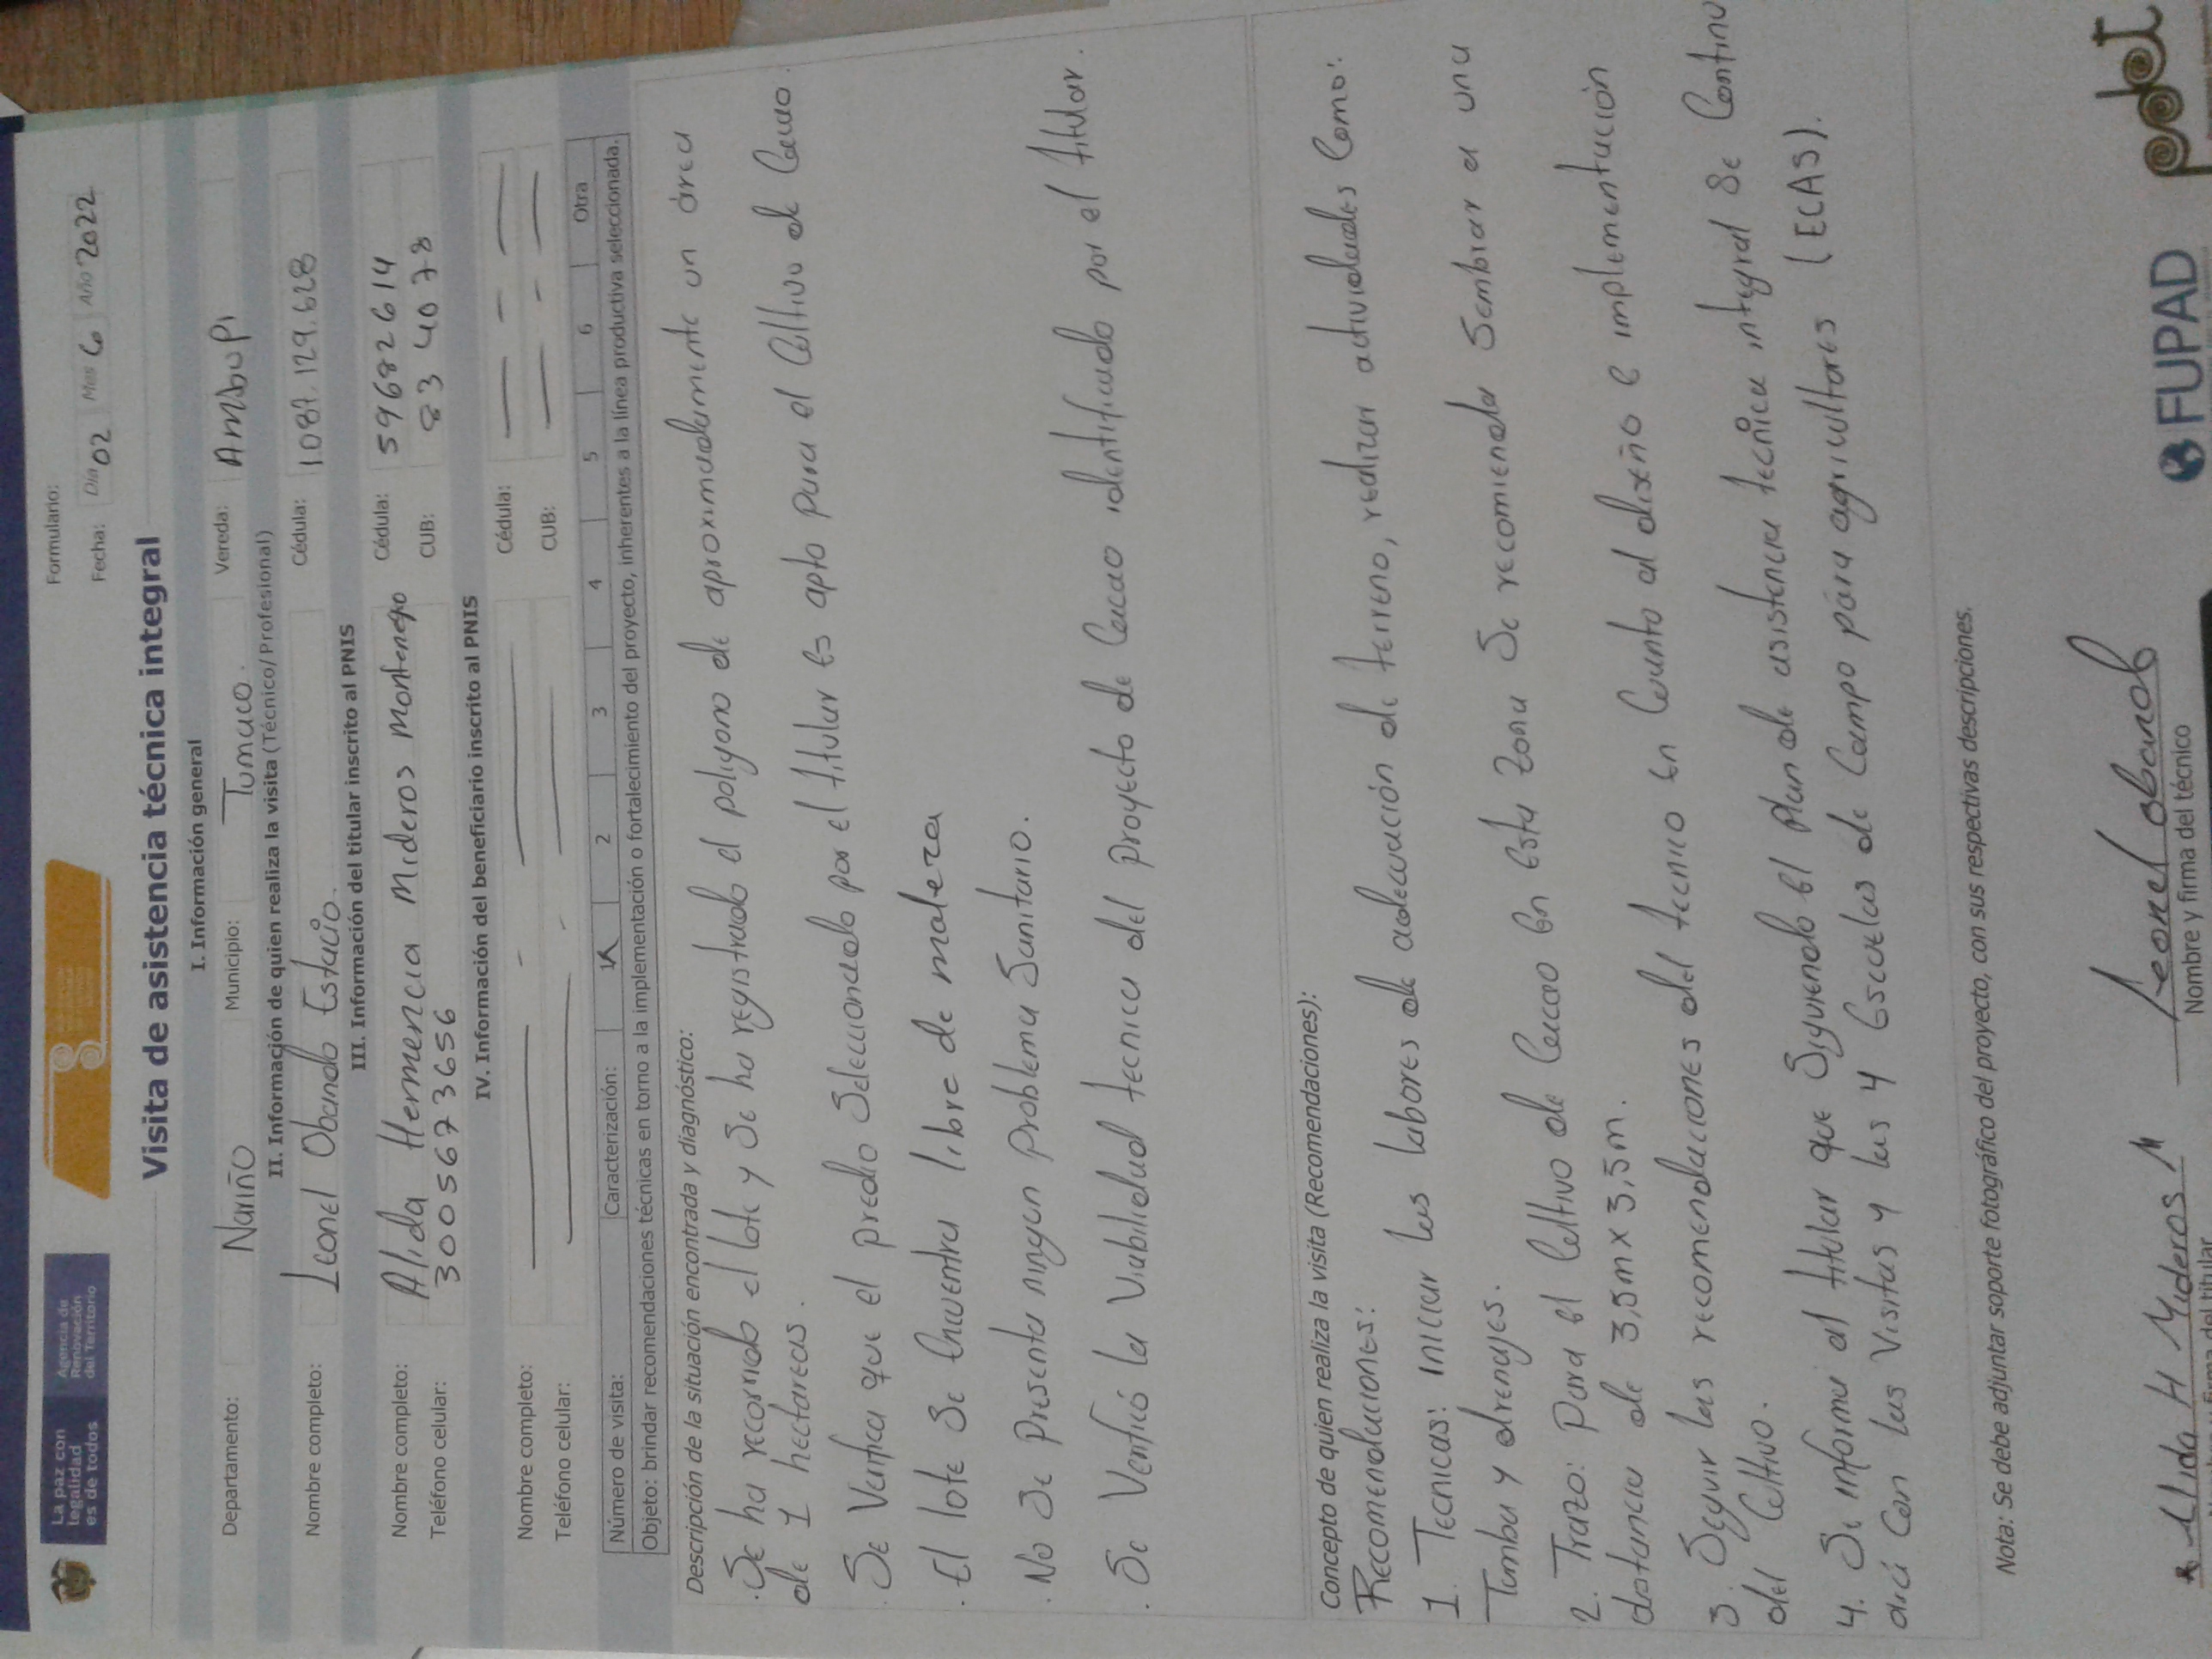 La paz con
legalidad
es de todos
Agencia de
Renovación
del Territorio
Formulario:
Fecha: Día 02 Mes 6 Año 2022
Visita de asistencia técnica integral
I. Información general
Departamento: Nariño Municipio: Tumaco. Vereda: Ambupi
II. Información de quien realiza la visita (Técnico/Profesional)
Nombre completo: Leonel Obando Estacio. Cédula: 1087.129.628
III. Información del titular inscrito al PNIS
Nombre completo: Alida Hermencia Mideros Montenegro Cédula: 59682614
Teléfono celular: 3005673656 CUB: 83 4078
IV. Información del beneficiario inscrito al PNIS
Nombre completo: Cédula:
Teléfono celular: CUB:
Número de visita: Caracterización: 1 X 2 3 4 5 6 Otra
Objeto: brindar recomendaciones técnicas en torno a la implementación o fortalecimiento del proyecto, inherentes a la línea productiva seleccionada.
Descripción de la situación encontrada y diagnóstico:
. Se ha recorrido el lote y Se ha registrado el poligono de aproximadamente un área
de 1 hectareas.
. Se Verifica que el predio Seleccionado por el titular es apto para el Cultivo de Cacao.
. El lote Se Encuentra libre de maleza
. No Se Presenta ningun Problema Sanitario.
. Se Verificó la Viabilidad tecnica del Proyecto de Cacao identificado por el titular.
Concepto de quien realiza la visita (Recomendaciones):
Recomendaciones:
1. Tecnicas: iniciar las labores de adecuación de terreno, realizar actividades Como:
Tumba y drenajes.
2. Trazo: Para el Cultivo de Cacao En Esta Zona Se recomienda Sembrar a una
distancia de 3,5m x 3,5m.
3. Seguir las recomendaciones del tecnico En Cuanto al diseño e implementación
del Cultivo.
4. Se informa al titular que Siguiendo El plan de asistencia tecnica integral Se Continu
ará Con las Visitas y las 4 Escuelas de Campo para agricultores (ECAS).
Nota: Se debe adjuntar soporte fotográfico del proyecto, con sus respectivas descripciones.
* Alida H Mideros M
firma del titular
Leonel Obando
Nombre y firma del técnico
FUPAD
pdet